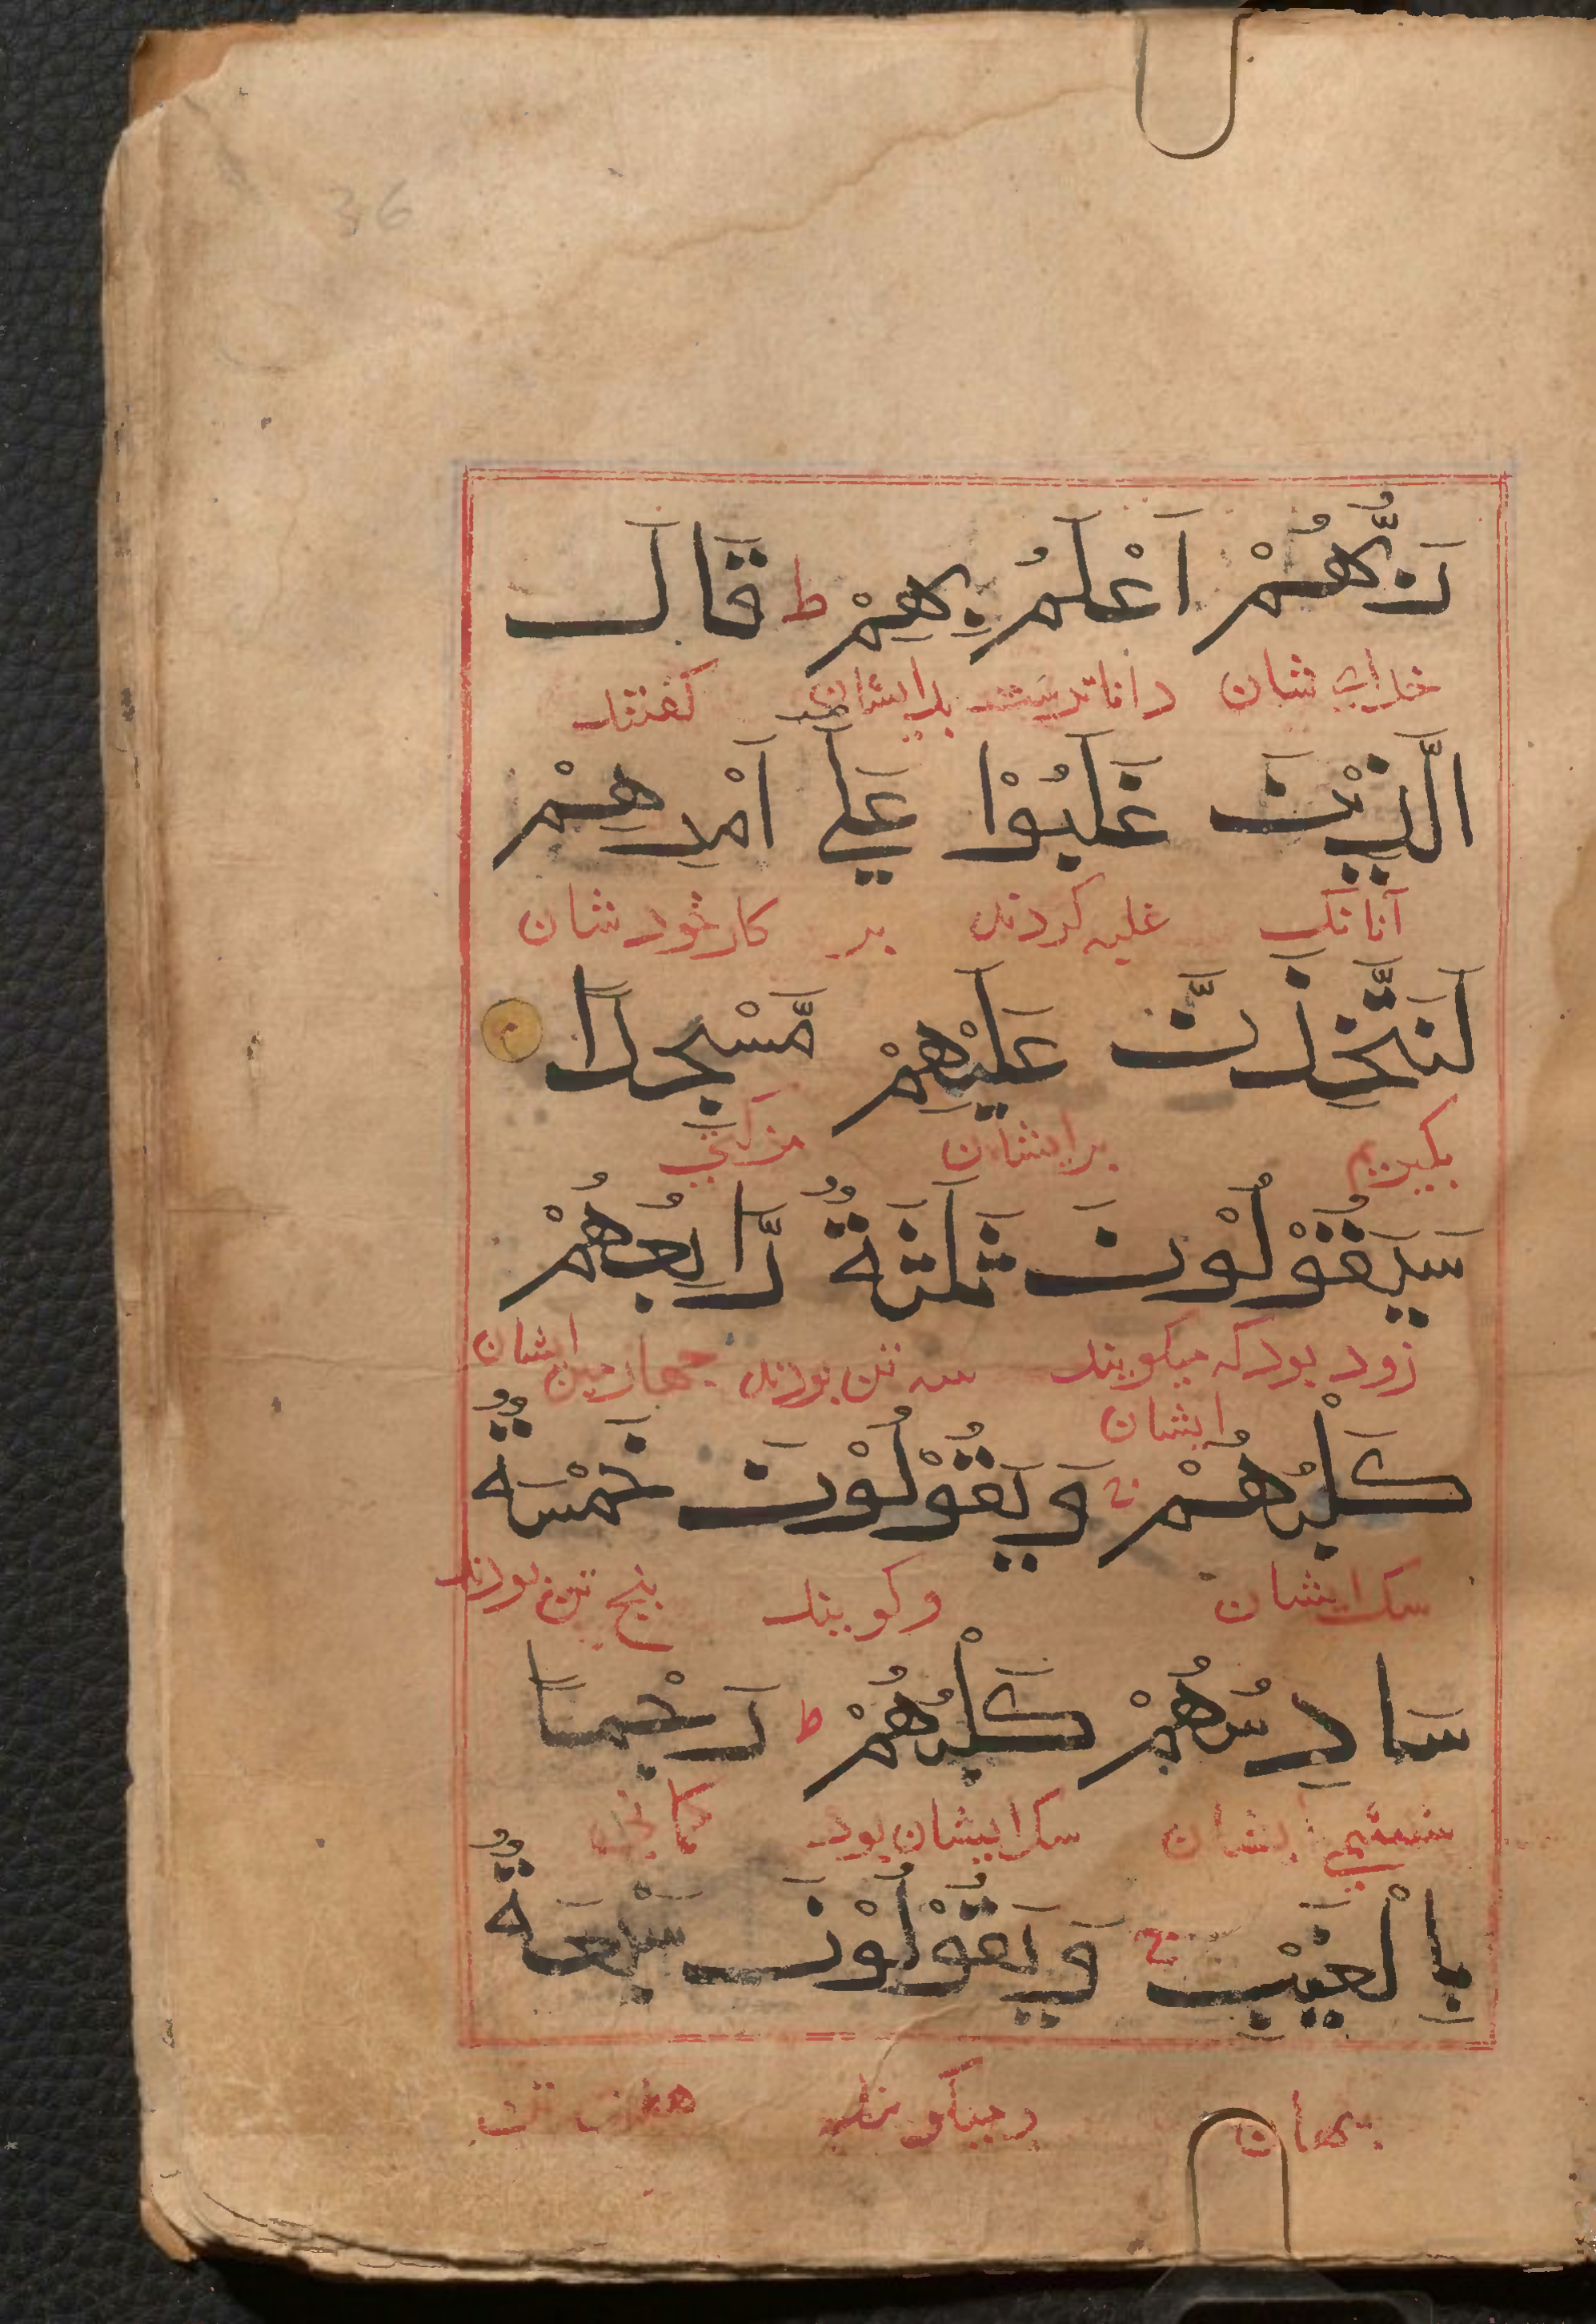 36
رَبُّهُمْ اَعْلَمُ بِهِمْ ط قَالَ
خدای شان داناترست بدایشان گفتند
الَّذِيْنَ غَلَبُوْا عَلٰٓى اَمْرِهِمْ
آنانک غلبه کردند بر کار خود شان
لَنَتَّخِذَنَّ عَلَيْهِمْ مَّسْجِدًا
بگیریم برایشان مزکتی
سَيَقُوْلُوْنَ ثَلٰثَةٌ رَّابِعُهُمْ
زود بود که میکویند سه تن بودند چهارمین ایشان
ایشان
كَلْبُهُمْ ج وَيَقُوْلُوْنَ خَمْسَةٌ
سک ایشان وکویند پنج تن بودند
سَادِسُهُمْ كَلْبُهُمْ ط رَجْمًا
ششمی ایشان سک ایشان بود
بِالْغَيْبِ ج وَيَقُوْلُوْنَ سَبْعَةٌ
ومیکویند هفت تن